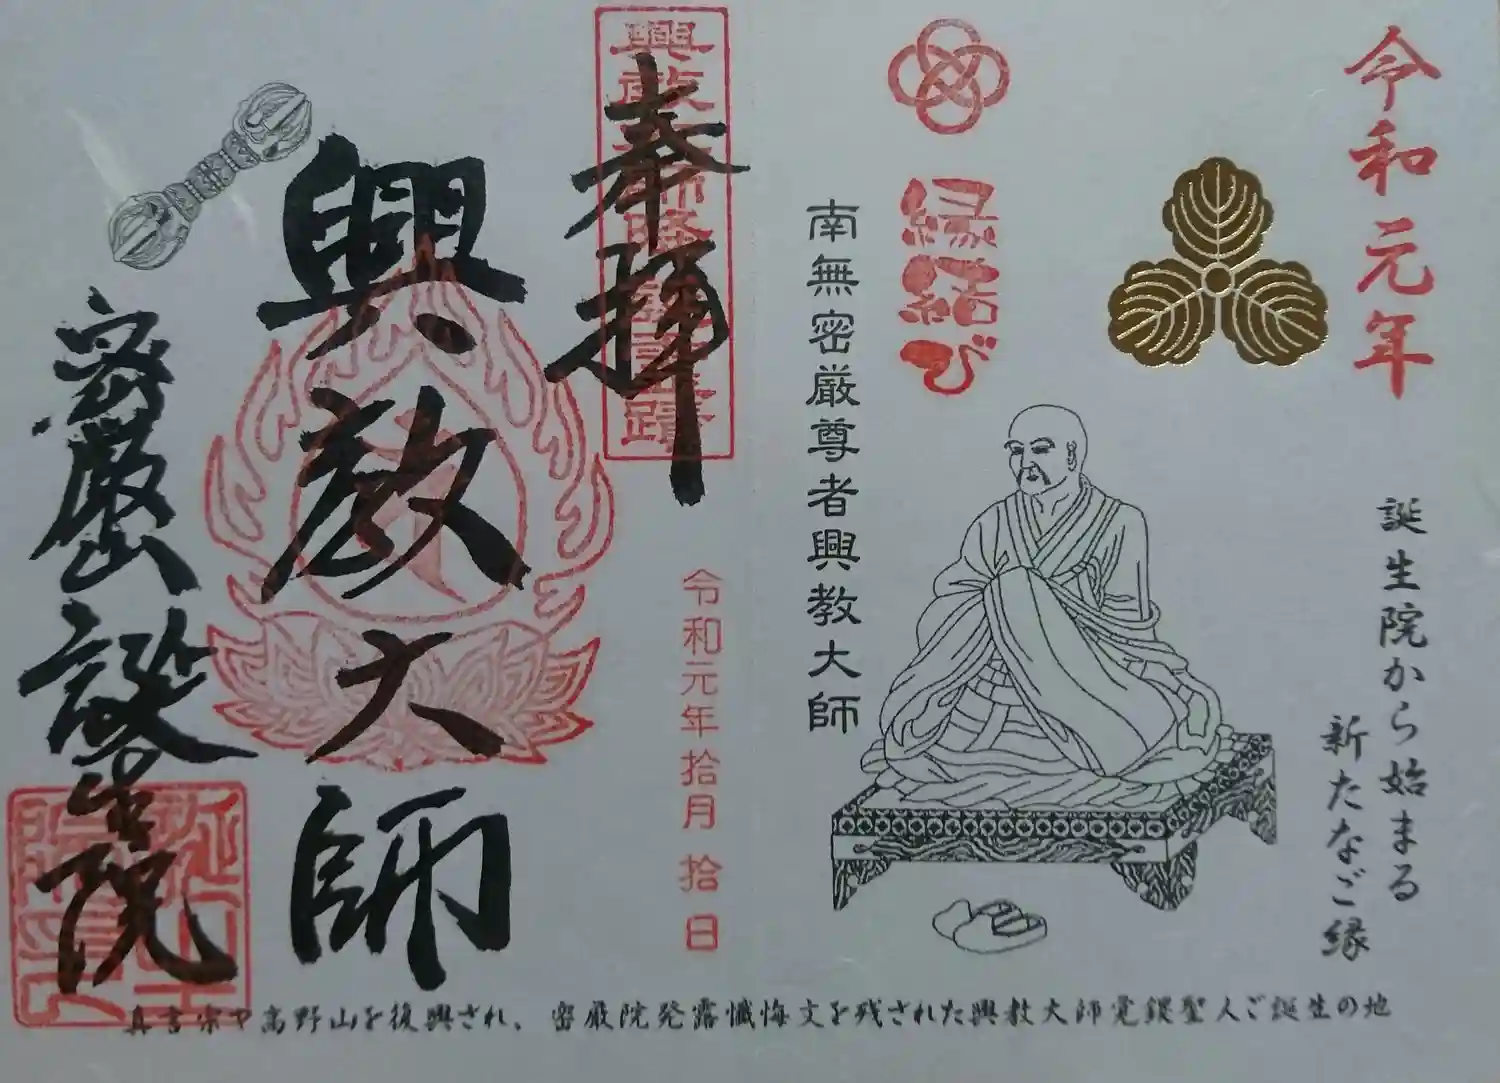 令和元年
誕生院から始まる
新たなご縁
縁結び
南無密厳尊者興教大師
奉拝
令和元年拾月拾日
興教大師
密厳山誕生院
真言宗や高野山を復興され、密厳院発露懺悔文を残された興教大師覚鑁聖人ご誕生の地